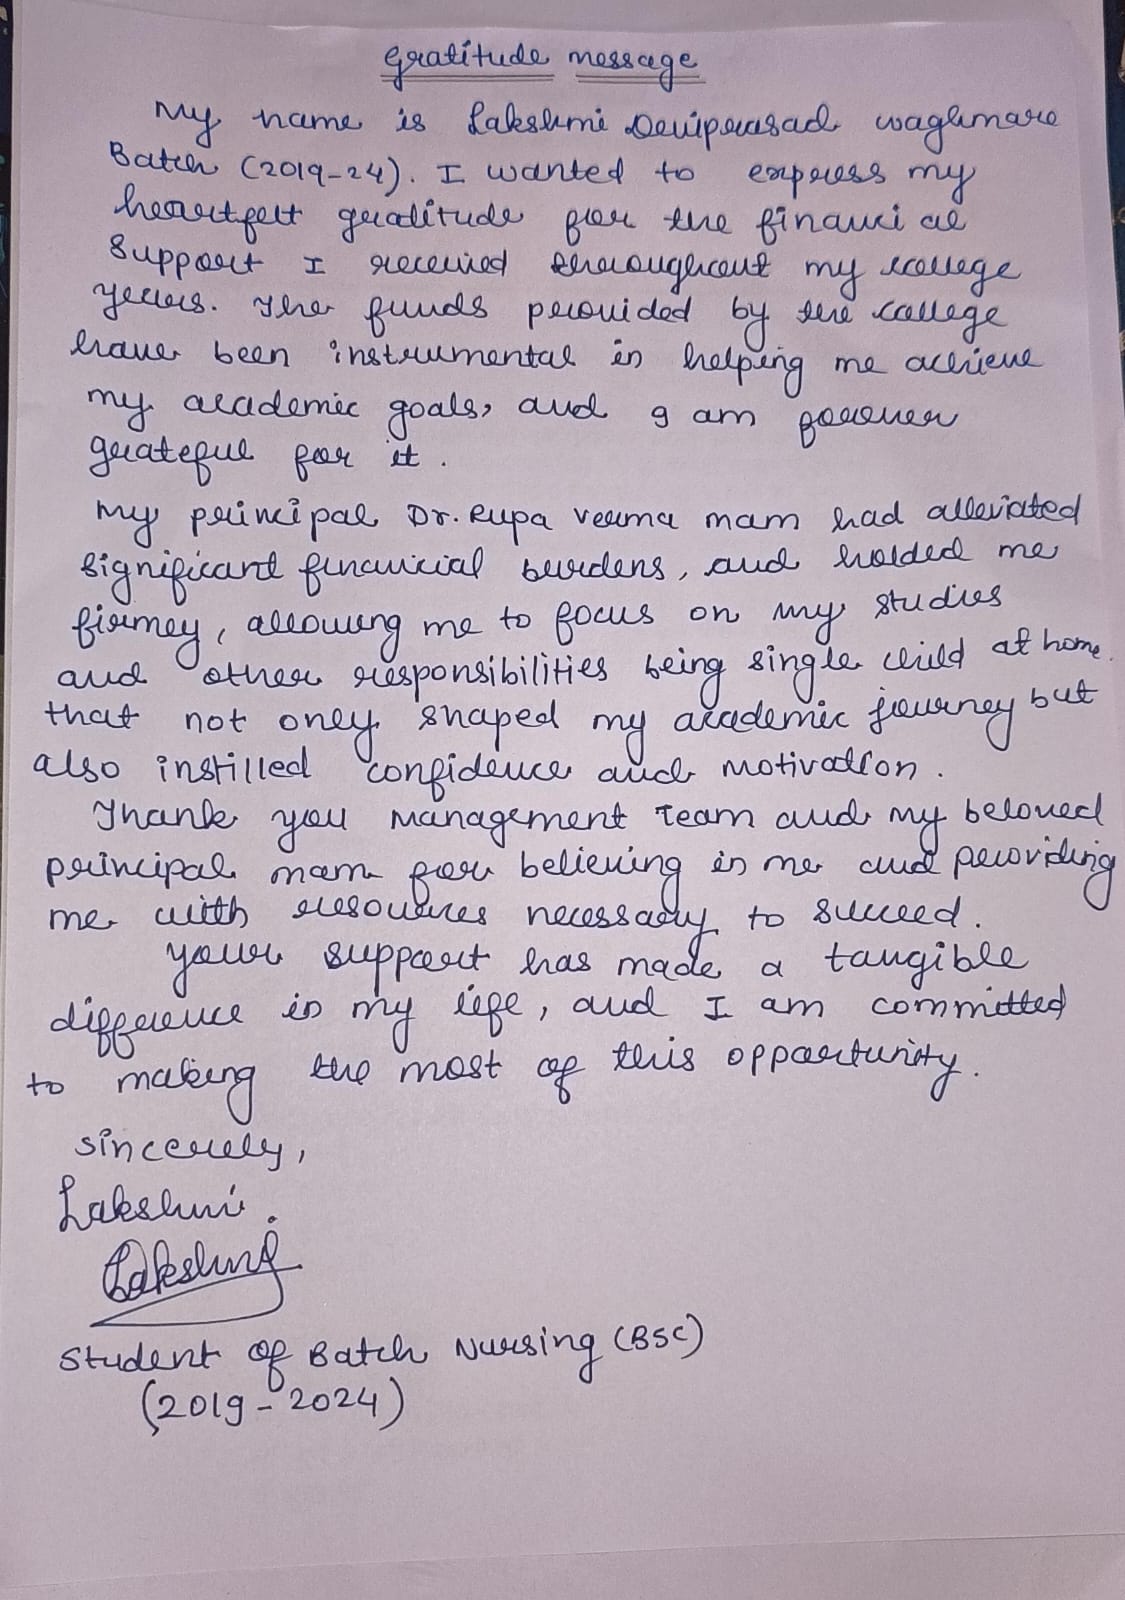 Gratitude message
My name is Lakshmi Deviprasad waghmare
Batch (2019-24). I wanted to express my
heartfelt gratitude for the financial
Support I received throughout my college
years. The funds provided by the college
have been instrumental in helping me achieve
my academic goals, and I am forever
grateful for it.
My principal Dr. Rupa Verma mam had alleviated
significant financial burdens, and holded me
firmly, allowing me to focus on my studies
and other responsibilities being single child at home.
that not only shaped my academic journey but
also instilled confidence and motivation.
Thank you management Team and my beloved
principal mam for believing in me and providing
me with resources necessary to succeed.
your support has made a tangible
difference in my life, and I am committed
to making the most of this opportunity.
sincerely,
Lakshmi.
Lakshmi
Student of Batch Nursing (BSC)
(2019-2024)